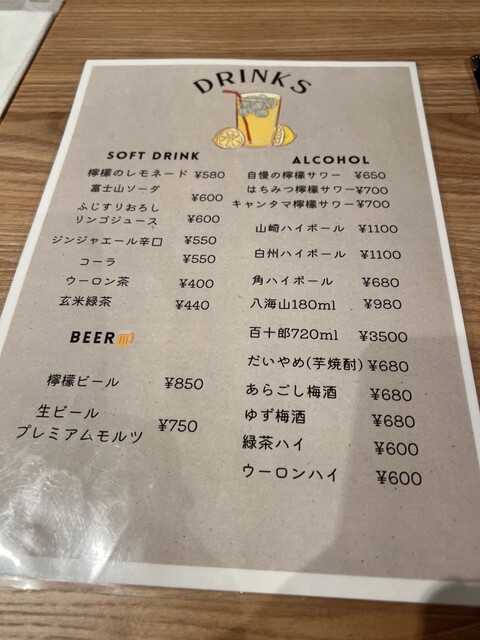 DRINKS
SOFT DRINK
檸檬のレモネード ¥580
富士山ソーダ ¥600
ふじすりおろし
リンゴジュース ¥600
ジンジャエール辛口 ¥550
コーラ ¥550
ウーロン茶 ¥400
玄米緑茶 ¥440
BEER
檸檬ビール ¥850
生ビール
プレミアムモルツ ¥750
ALCOHOL
自慢の檸檬サワー ¥650
はちみつ檸檬サワー ¥700
キャンタマ檸檬サワー ¥700
山崎ハイボール ¥1100
白州ハイボール ¥1100
角ハイボール ¥680
八海山180ml ¥980
百十郎720ml ¥3500
だいやめ(芋焼酎) ¥680
あらごし梅酒 ¥680
ゆず梅酒 ¥680
緑茶ハイ ¥600
ウーロンハイ ¥600